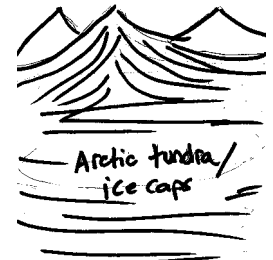 Arctic tundra/
ice caps